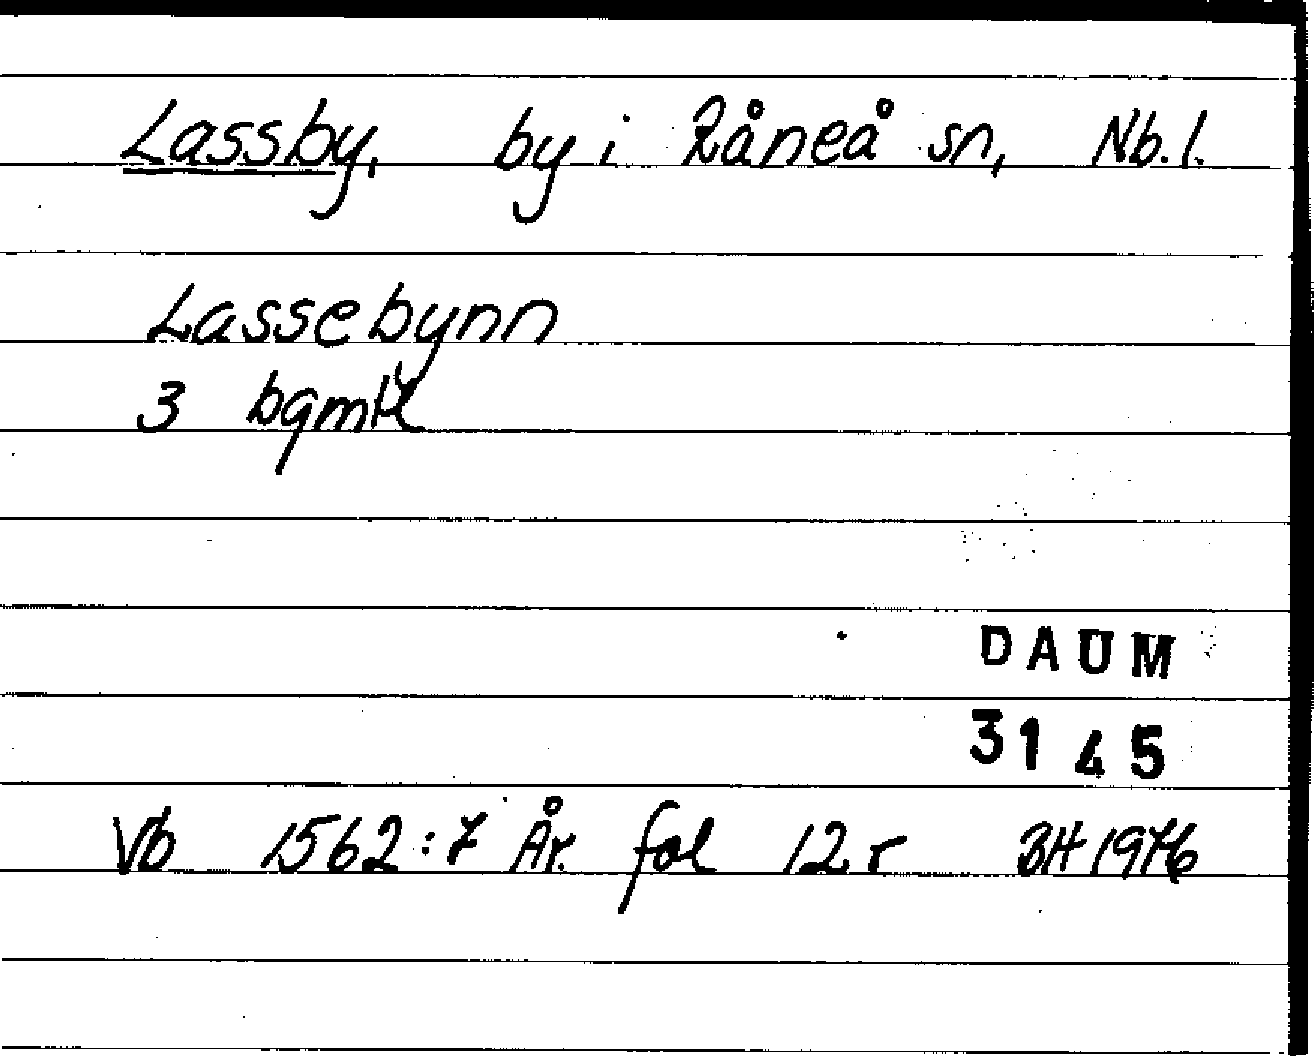 Lassby, by i Råneå sn, Nb.l.
Lassebynn
3 bgmk
DAUM
3145
Vb 1562:7 År. fol 12 r BH 1976